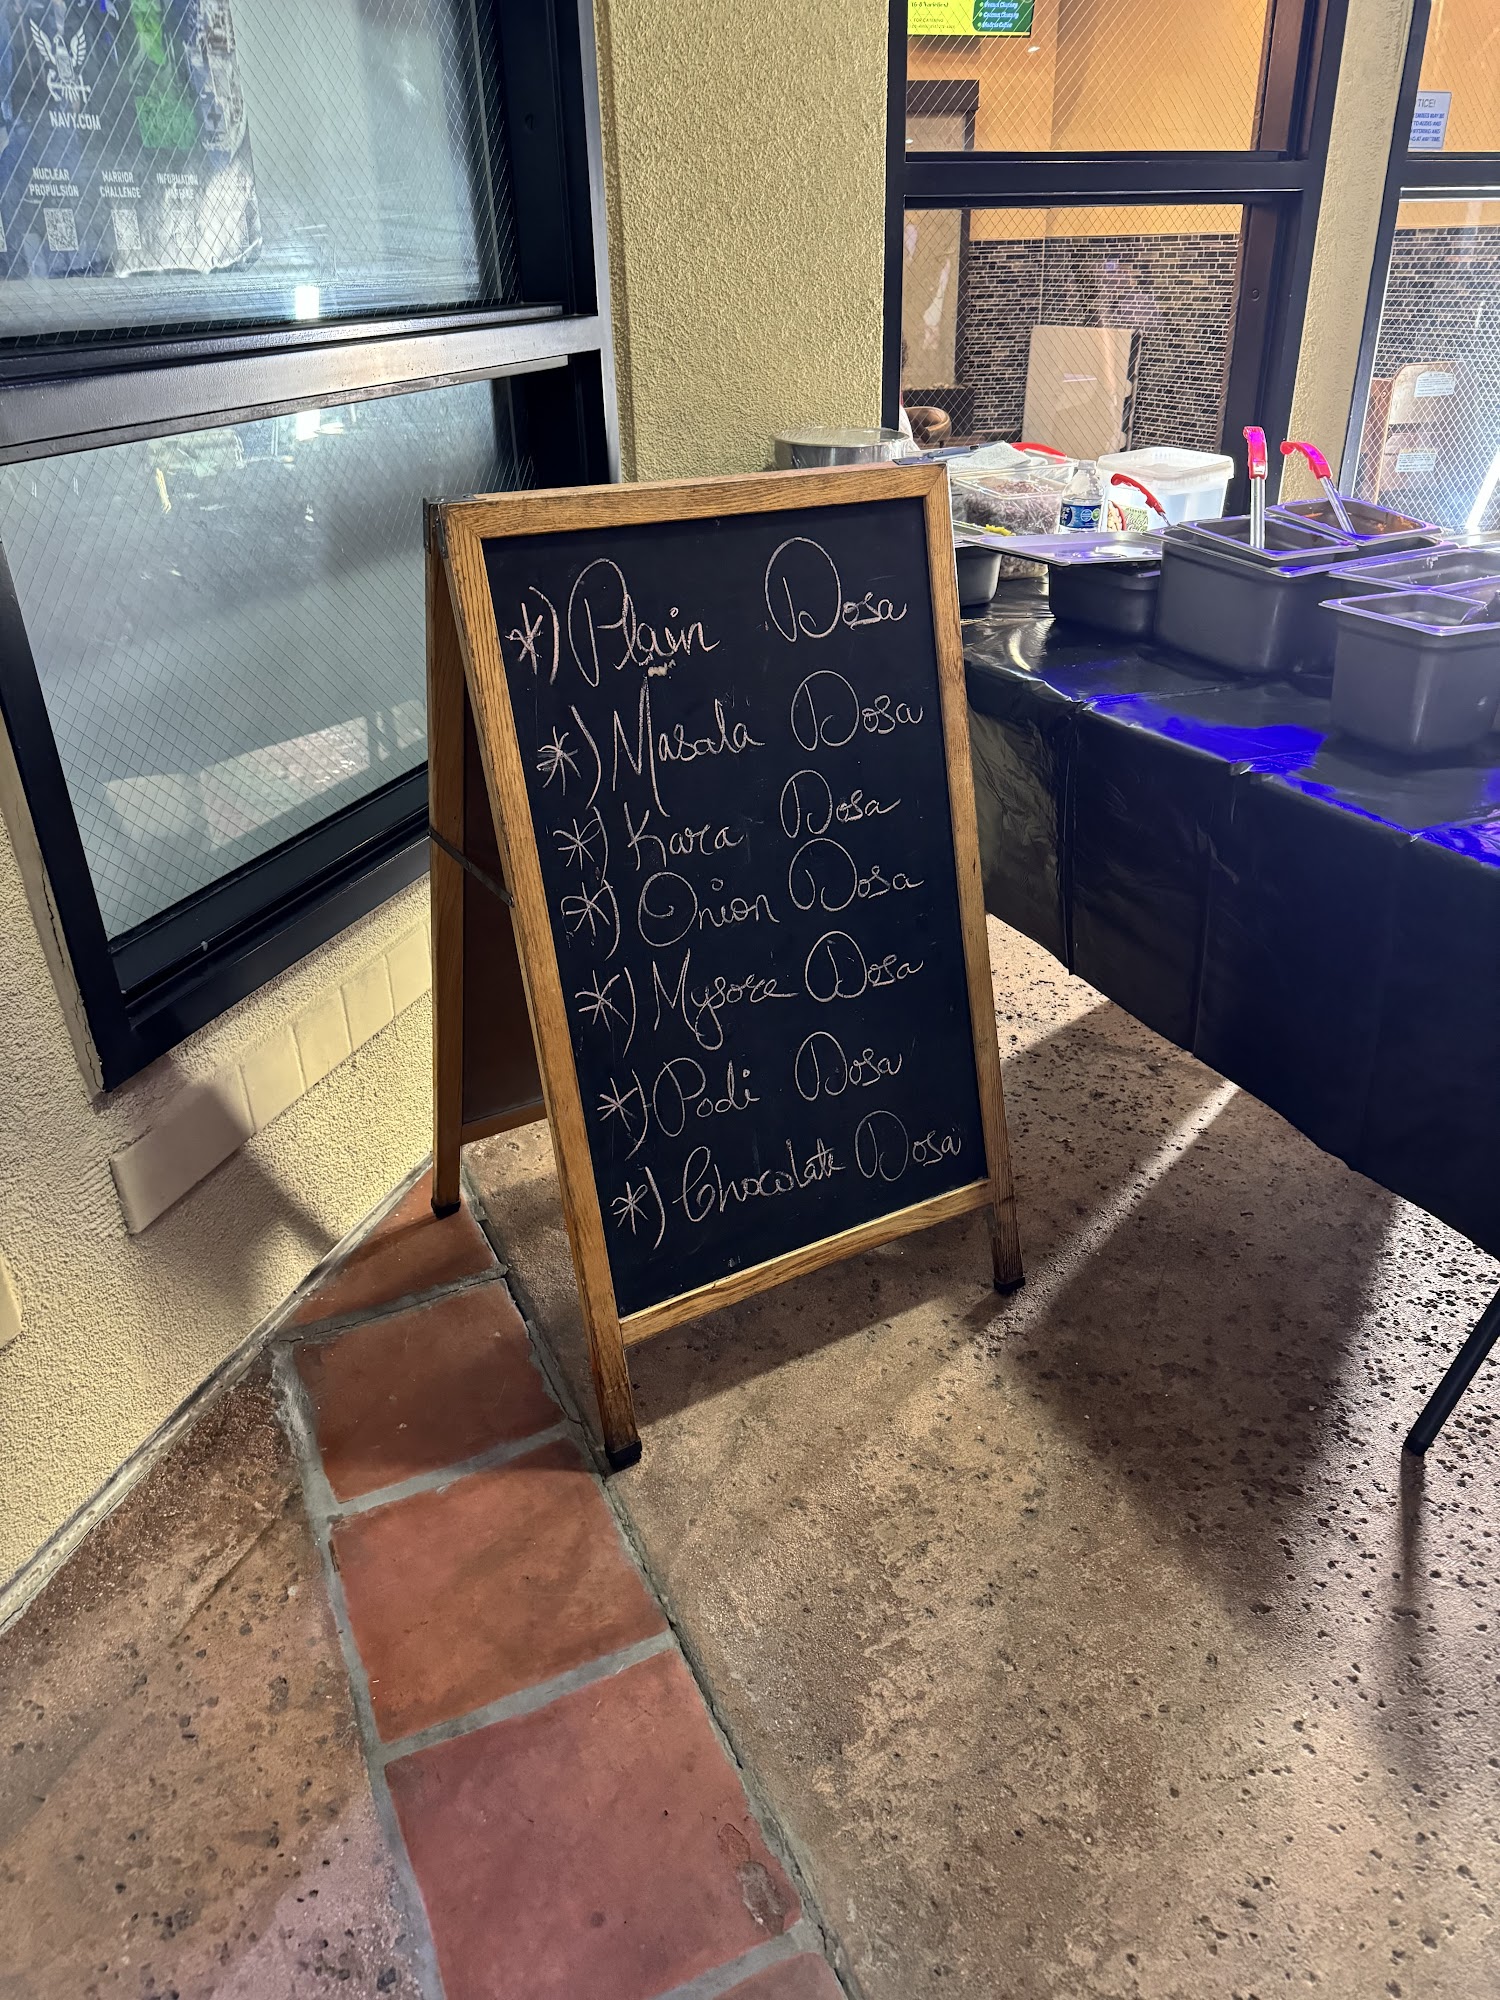 NAVY.COM
NUCLEAR PROPULSION
WARRIOR CHALLENGE
INFORMATION
*) Plain Dosa
*) Masala Dosa
*) Kara Dosa
*) Onion Dosa
*) Mysore Dosa
*) Podi Dosa
*) Chocolate Dosa